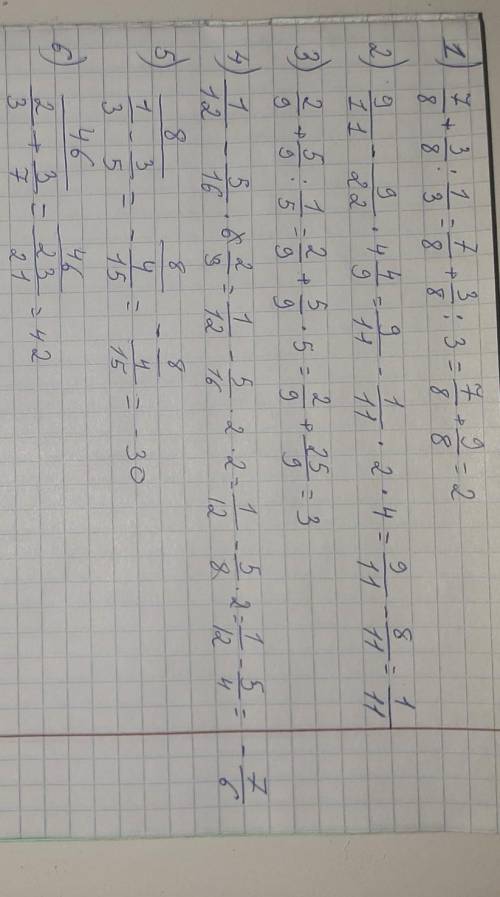 1) 7/8 + 3/8 : 1/3 = 7/8 + 3/8 · 3 = 7/8 + 9/8 = 2
2) 9/11 - 9/22 · 4 4/9 = 9/11 - 1/11 · 2 · 4 = 9/11 - 8/11 = 1/11
3) 2/9 + 5/9 : 1/5 = 2/9 + 5/9 · 5 = 2/9 + 25/9 = 3
4) 1/12 - 5/16 · 6 2/9 = 1/12 - 5/16 · 2 · 2 = 1/12 - 5/8 · 2 = 1/12 - 5/4 = - 7/6
5) 8/(1/3 - 3/5) = 8/(- 4/15) = - 8/(4/15) = - 30
6) 46/(2/3 + 3/7) = 46/(23/21) = 42